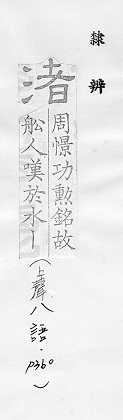 隸辨
渚
周憬功勲銘故
舩人嘆於水丨
(上聲八語·p360)